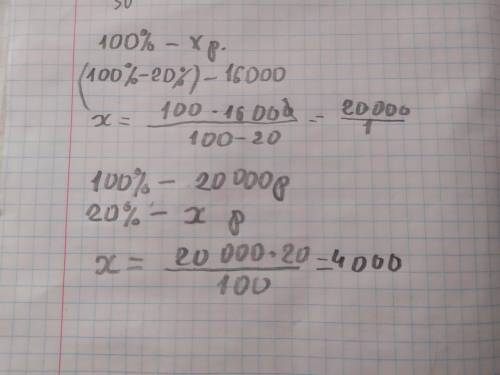 30
100% - x р.
(100%-20%) - 16000
x = 100 · 16000 / 100-20 = 20000 / 1
100% - 20 000 р
20% - x р
x = 20 000 · 20 / 100 = 4000